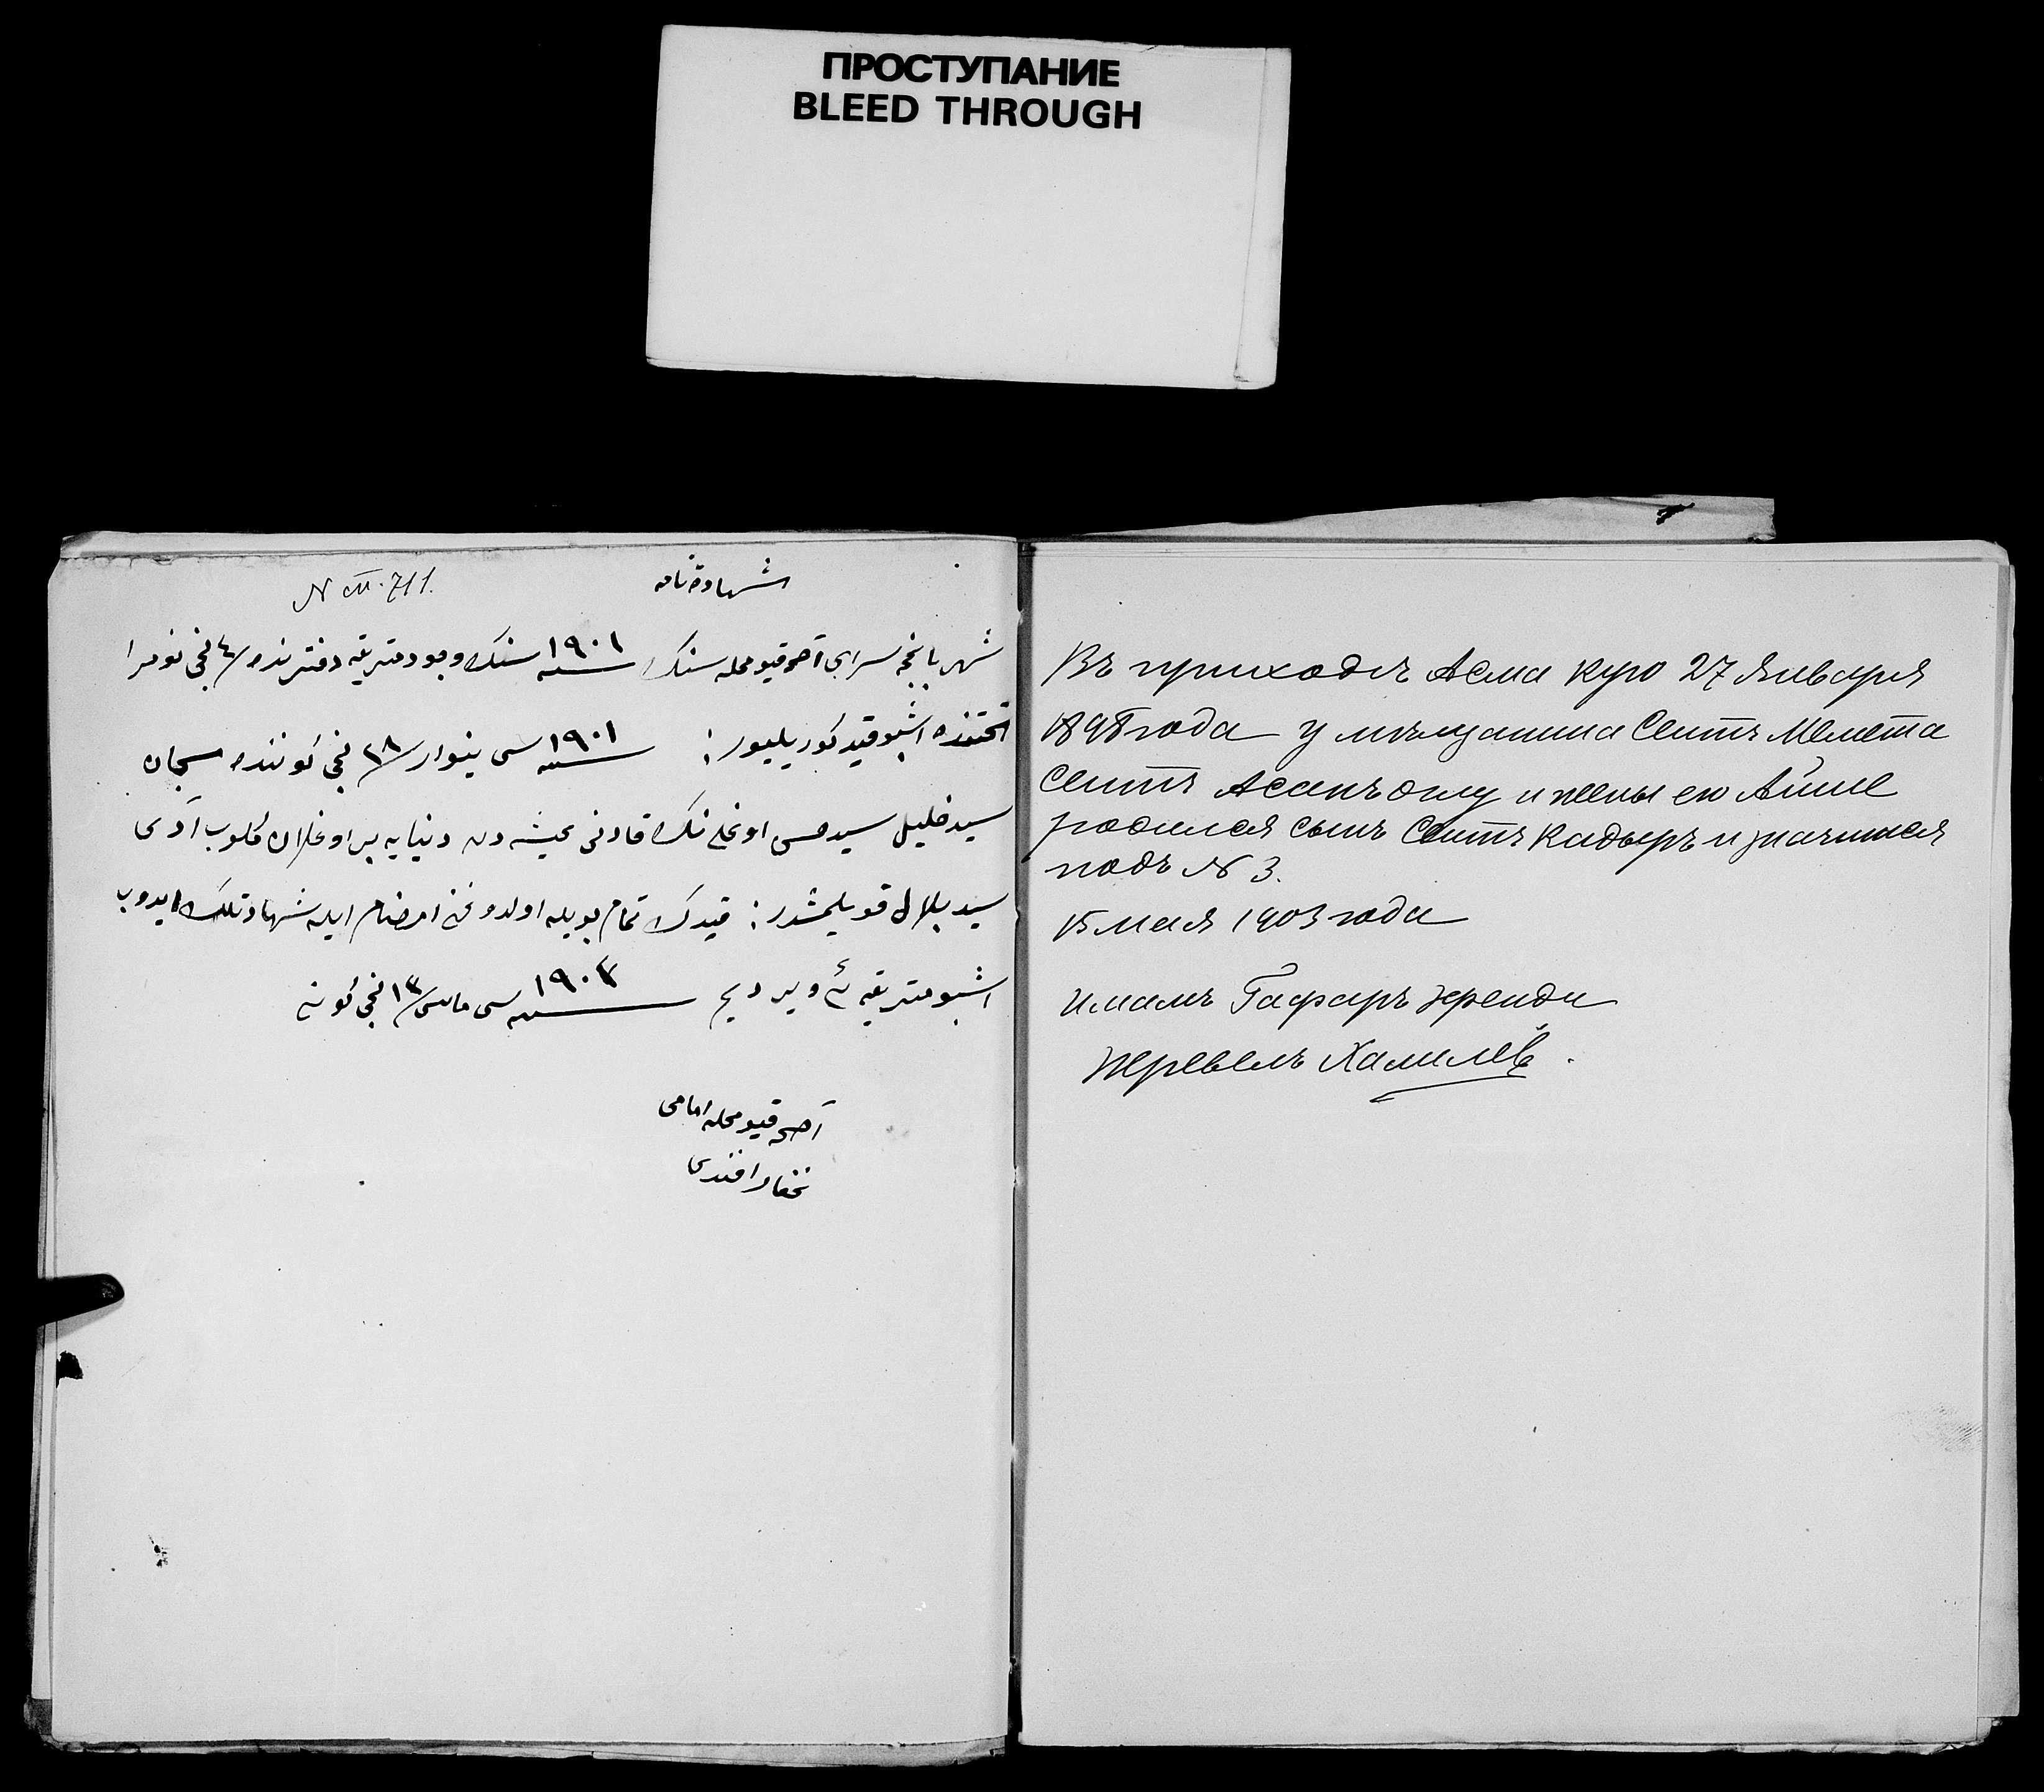 ПРОСТУПАНИЕ
BLEED THROUGH
شهادتنامه
N ст. 711.
شهر باغچه سرای آصمه قیو محله سنك ١٩٠١ سنه سنك وجود متریقه دفترنده ٤ نجی نومرا
تحتنده اشبو قید كوریلیور : ١٩٠١ سنه سی ینوار ٢٨ نجی كوننده مسجان
سید خلیل سید حسن اوغلی نك قادنی عیشه دن دنیایه بر اوغلان كلوب آدی
سید بلال قویلمشدر : قیدك تمام بویله اولدوغن امضام ایله شهادتلك ایدوب
اشبو متریقه ئی ویردیم ١٩٠٣ سنه سی مایس ١٣ نجی كونی
آصمه قیو محله امامی
غفار افندی
Въ приходѣ Асма кую 27 Января
1898 года у мѣщанина Сеитъ Мемета
Сеитъ Асанъ оглу и жены ею Айше
родился сынъ Сеитъ Кадыръ и значится
подъ N 3.
15 мая 1903 года
Имамъ Гафаръ Эфенди
перевелъ Халилев.